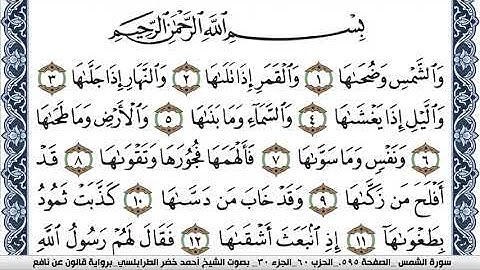 بِسْمِ اللَّهِ الرَّحْمَٰنِ الرَّحِيمِ
وَالشَّمْسِ وَضُحَىٰهَا ١ وَالْقَمَرِ إِذَا تَلَىٰهَا ٢ وَالنَّهَارِ إِذَا جَلَّىٰهَا ٣
وَالَّيْلِ إِذَا يَغْشَىٰهَا ٤ وَالسَّمَآءِ وَمَا بَنَىٰهَا ٥ وَالْأَرْضِ وَمَا طَحَىٰهَا
٦ وَنَفْسٍ وَمَا سَوَّىٰهَا ٧ فَأَلْهَمَهَا فُجُورَهَا وَتَقْوَىٰهَا ٨ قَدْ
أَفْلَحَ مَن زَكَّىٰهَا ٩ وَقَدْ خَابَ مَن دَسَّىٰهَا ١٠ كَذَّبَتْ ثَمُودُ
بِطَغْوَىٰهَا ١١ إِذِ انۢبَعَثَ أَشْقَىٰهَا ١٢ فَقَالَ لَهُمْ رَسُولُ اللَّهِ
سورة الشمس_الصفحة ٥٩٥_الحزب ٦٠_الجزء ٣٠_ بصوت الشيخ أحمد خضر الطرابلسي_برواية قالون عن نافع